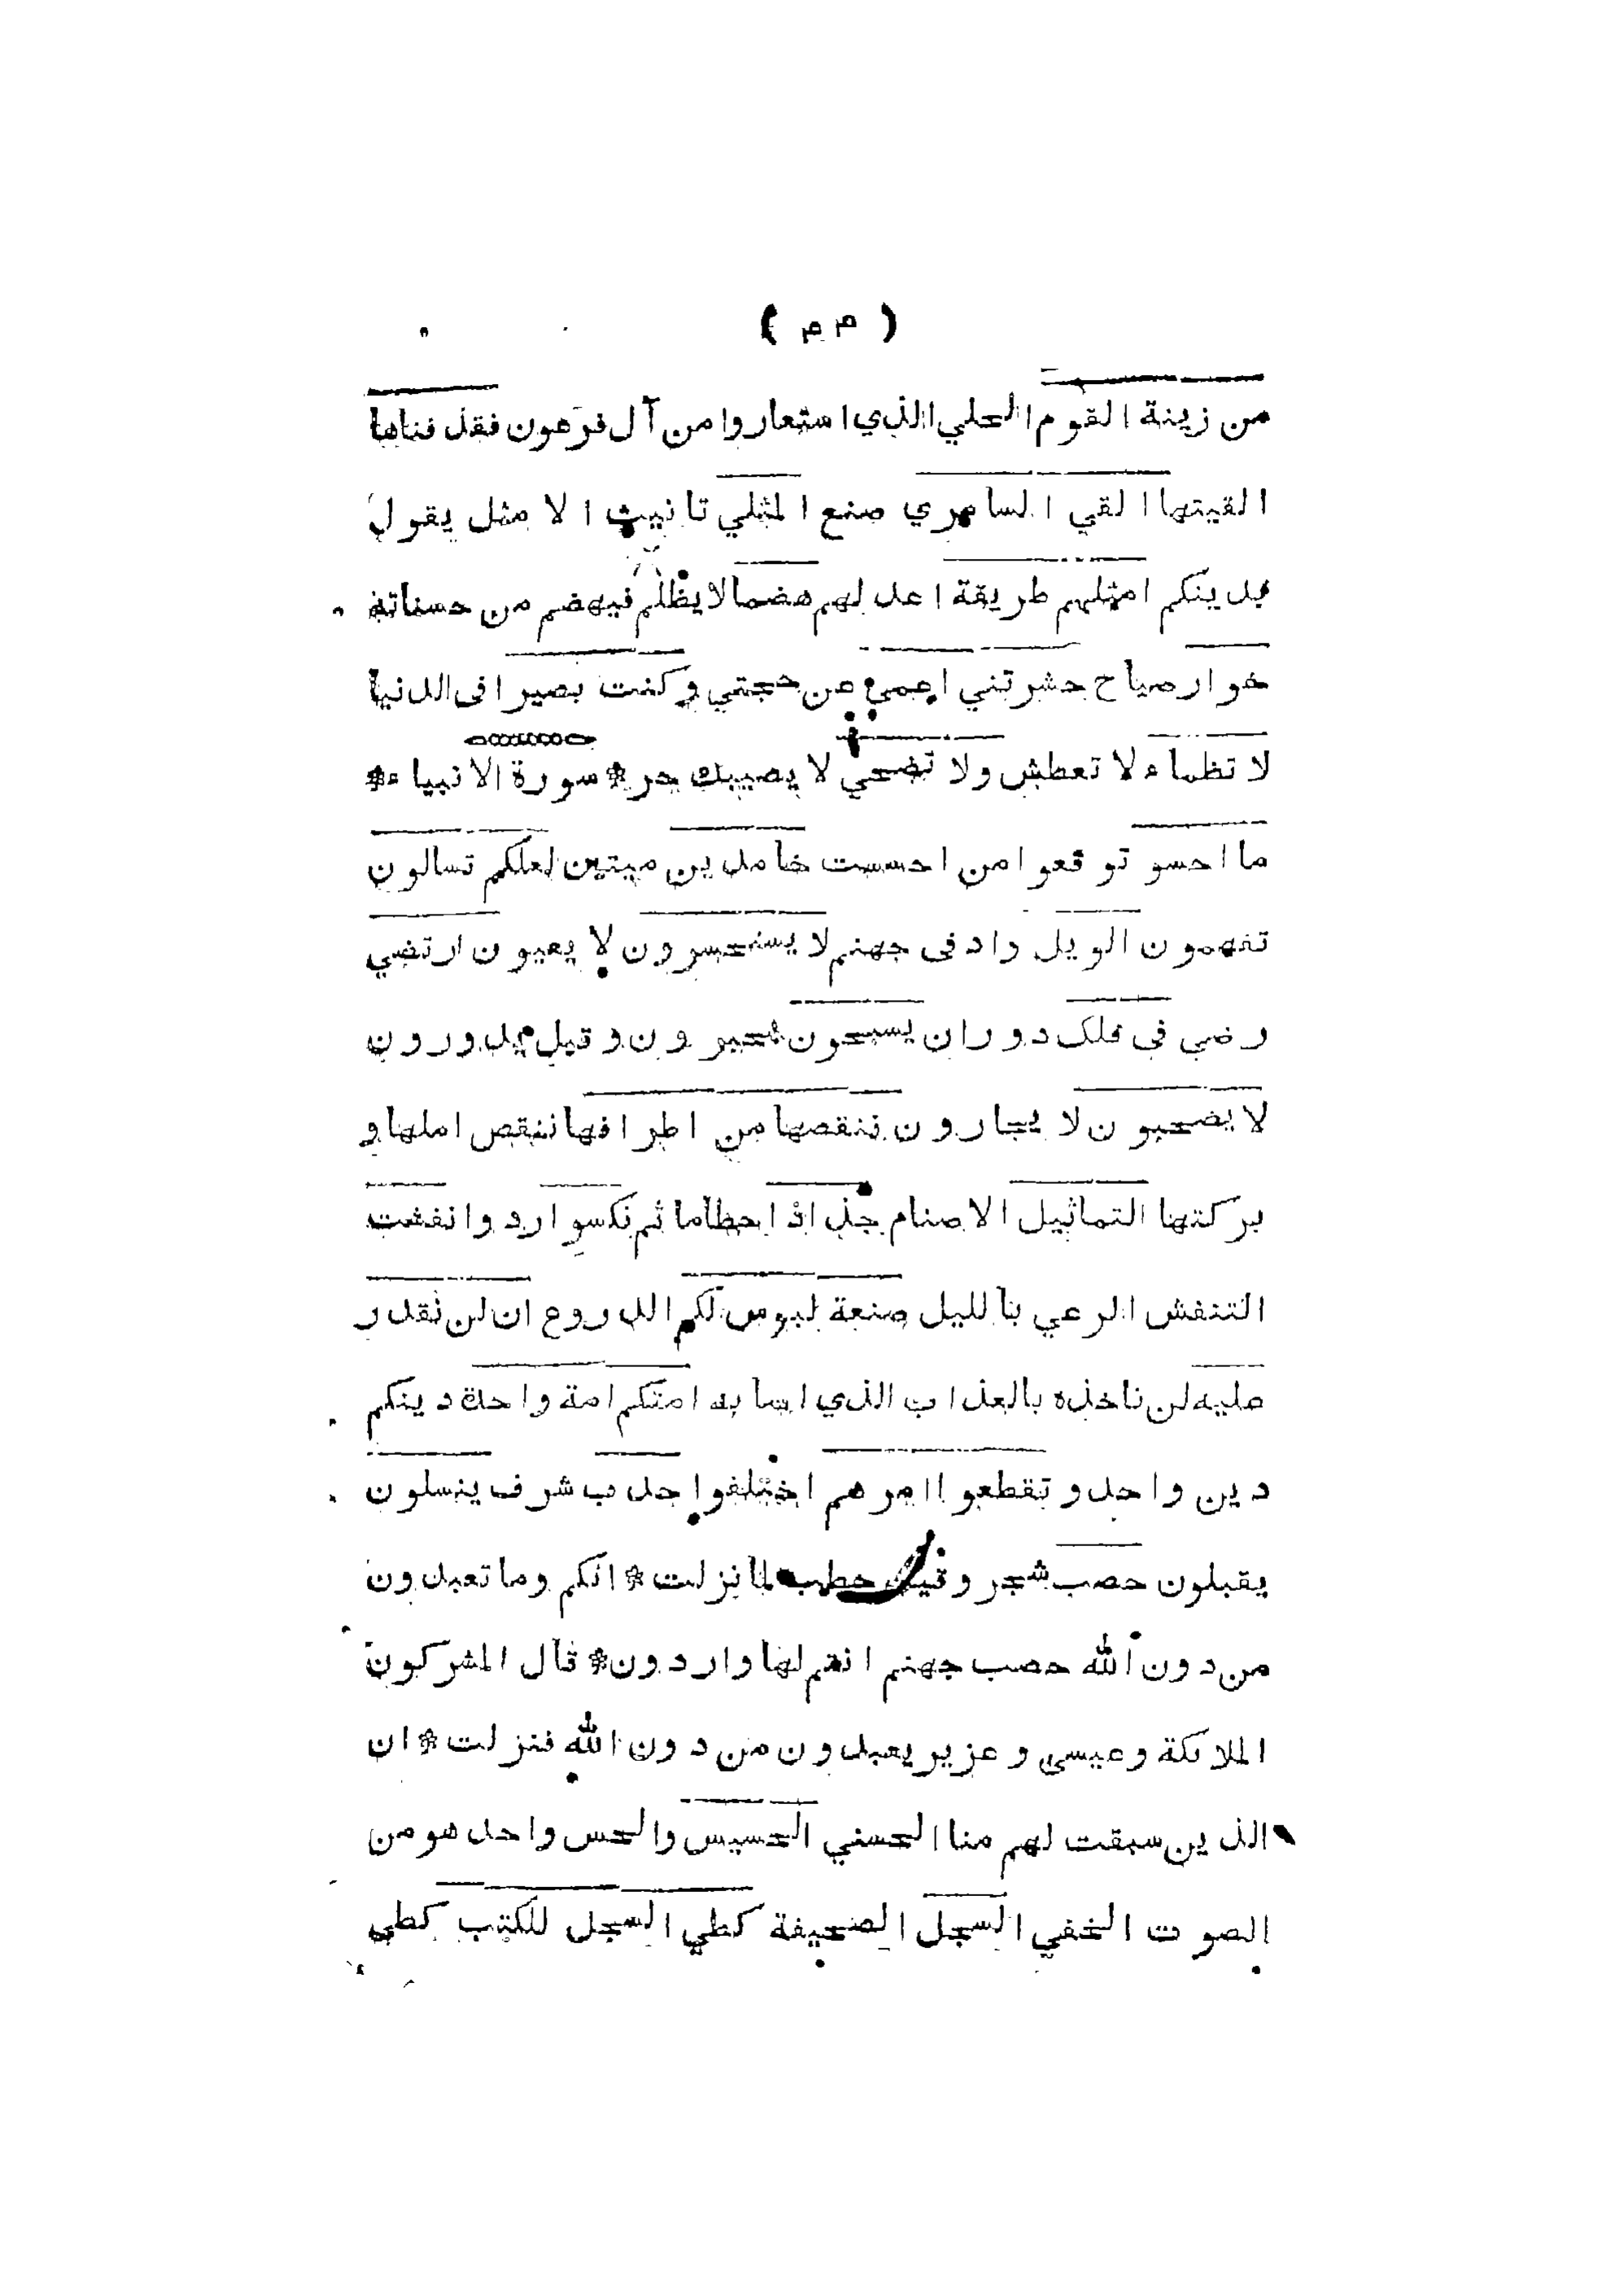 ( ٣٣ )
من زينة القوم الحلي الذي استعاروا من آل فرعون فقذفناها
القيتها القي السامري صنع المثلي تانيث الامثل يقول
بدينكم امثلهم طريقة اعدلهم هضما لا يظلم فيهضم من حسناته
خوار صياح حشرتني اعمي عن حجتي وكنت بصيرا فى الدنيا
لا تظماء لا تعطش ولا تضحي لا يصيبك حر * سورة الانبياء *
ما احسو توقعوا من احسست خامدين ميتين لعلكم تسالون
تفهمون الويل واد فى جهنم لا يستحسرون لا يعيون ارتضي
رضي فى فلك دوران يسبحون يحيرون وقيل يدورون
لا يصحبون لا يجارون ننقصها من اطرافها ننقص اهلها و
بركتها التماثيل الاصنام جذاذا حطاما ثم نكسوا ردوا نفشت
التنفش الرعي بالليل صنعة لبوس لكم الدروع ان لن نقدر
عليه لن ناخذه بالعذاب الذي اصابه امتكم امة واحدة دينكم
دين واحد وتقطعوا امرهم اختلفوا حدب شرف ينسلون
يقبلون حصب شجر وقيل حطب لما نزلت * انكم وما تعبدون
من دون الله حصب جهنم انتم لها واردون * قال المشركون
الملائكة وعيسى وعزير يعبدون من دون الله فنزلت * ان
الذين سبقت لهم منا الحسني الحسيس والحس واحد هو من
الصوت الخفي السجل الصحيفة كطي السجل للكتب كطي